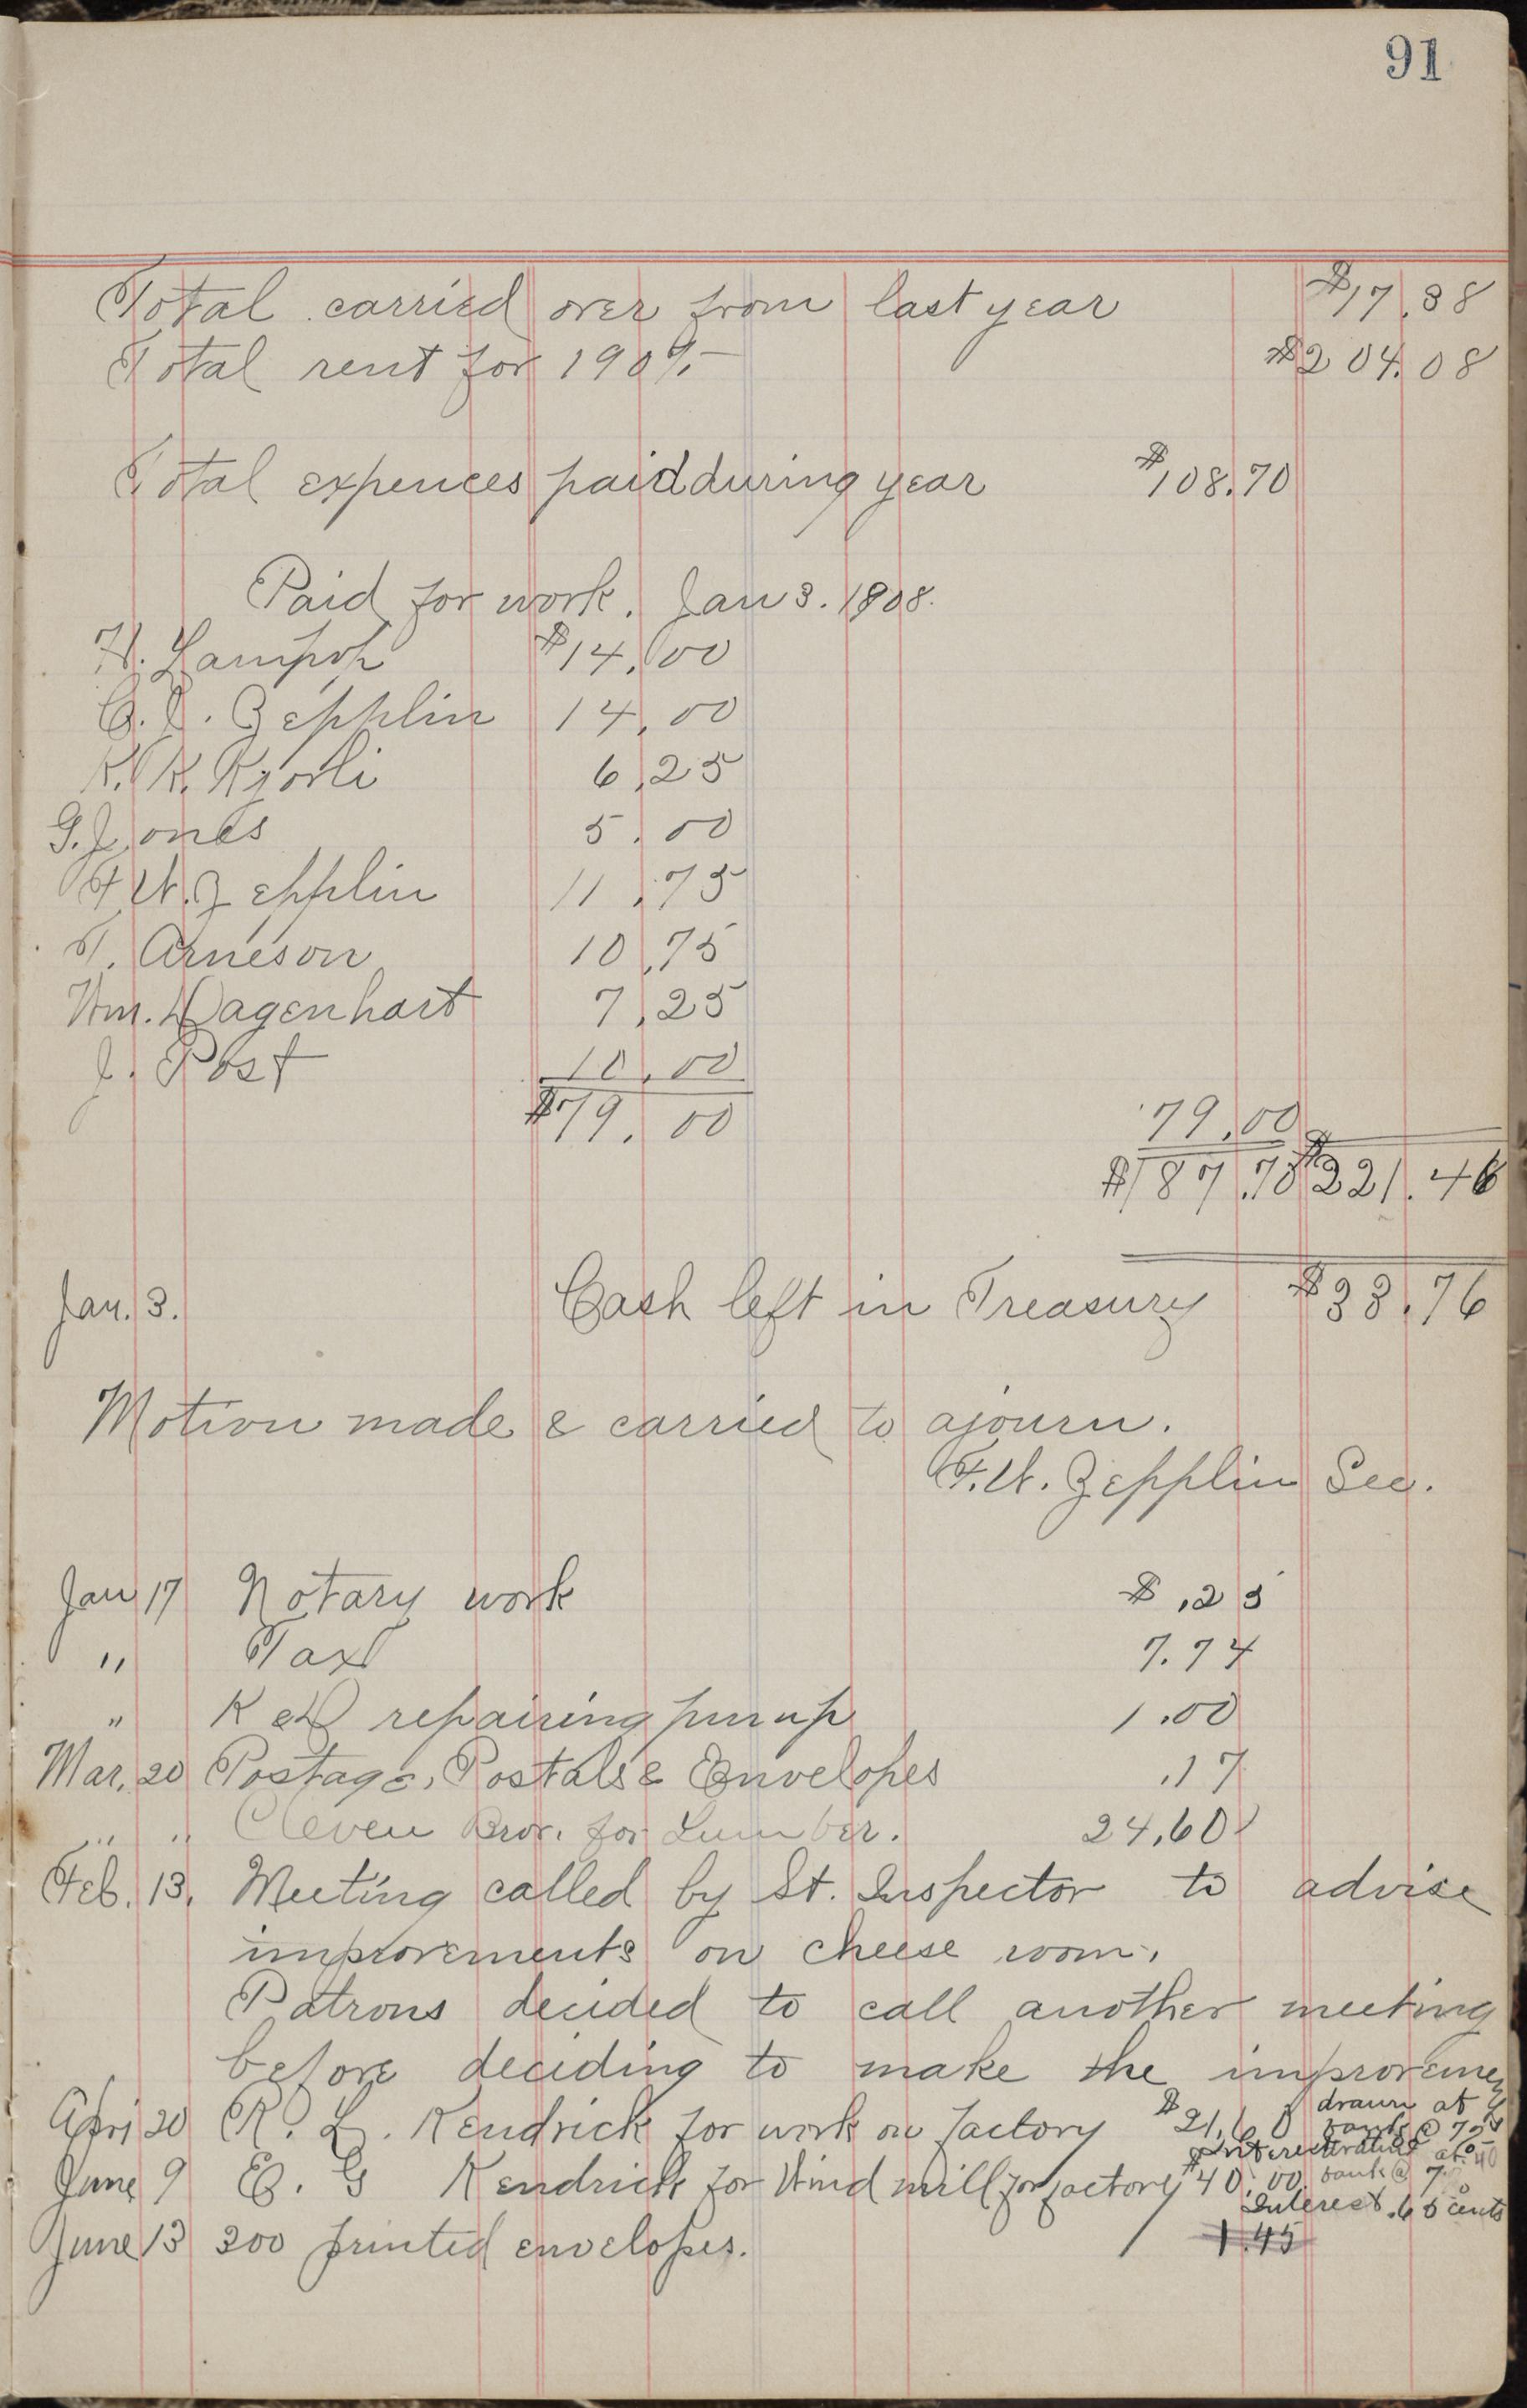 91
Total carried over from last year $17.38
Total rent for 1907. $204.08
Total expences paid during year $108.70
Paid for work. Jan 3. 1908.
H. Lampop $14.00
C. J. Zepplin 14.00
K. K. Kjorli 6.25
G. Jones 5.00
F. W. Zepplin 11.75
T. Arneson 10.75
Wm. Dagenhart 7.25
J. Post 10.00
$79.00 79.00
$187.70 $221.46
Jan. 3. Cash left in Treasury $33.76
Motion made & carried to ajourn.
F. W. Zepplin Sec.
Jan 17 Notary work $.25
" Tax 7.74
" K & D repairing pump 1.00
Mar. 20 Postage, Postals & Envelopes .17
" " Cleven Bros. for Lumber. 24.60
Feb. 13. Meeting called by St. Inspector to advise
improvements on cheese room.
Patrons decided to call another meeting
before deciding to make the improvemen
Apri 20 R. L. Kendrick for work on factory $21.60 drawn at
bank @ 7
Interest
June 9 E. G Kendrick for Wind mill for factory $40.00 bank @ 7
Interest .65 cents
June 13 300 printed envelopes. 1.45